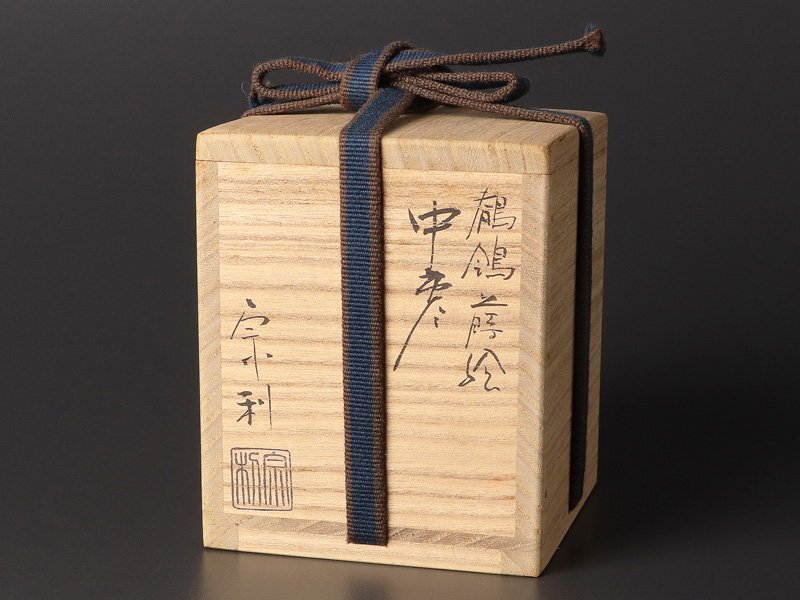 鶺鴒蒔絵
中棗
宗利
宗利